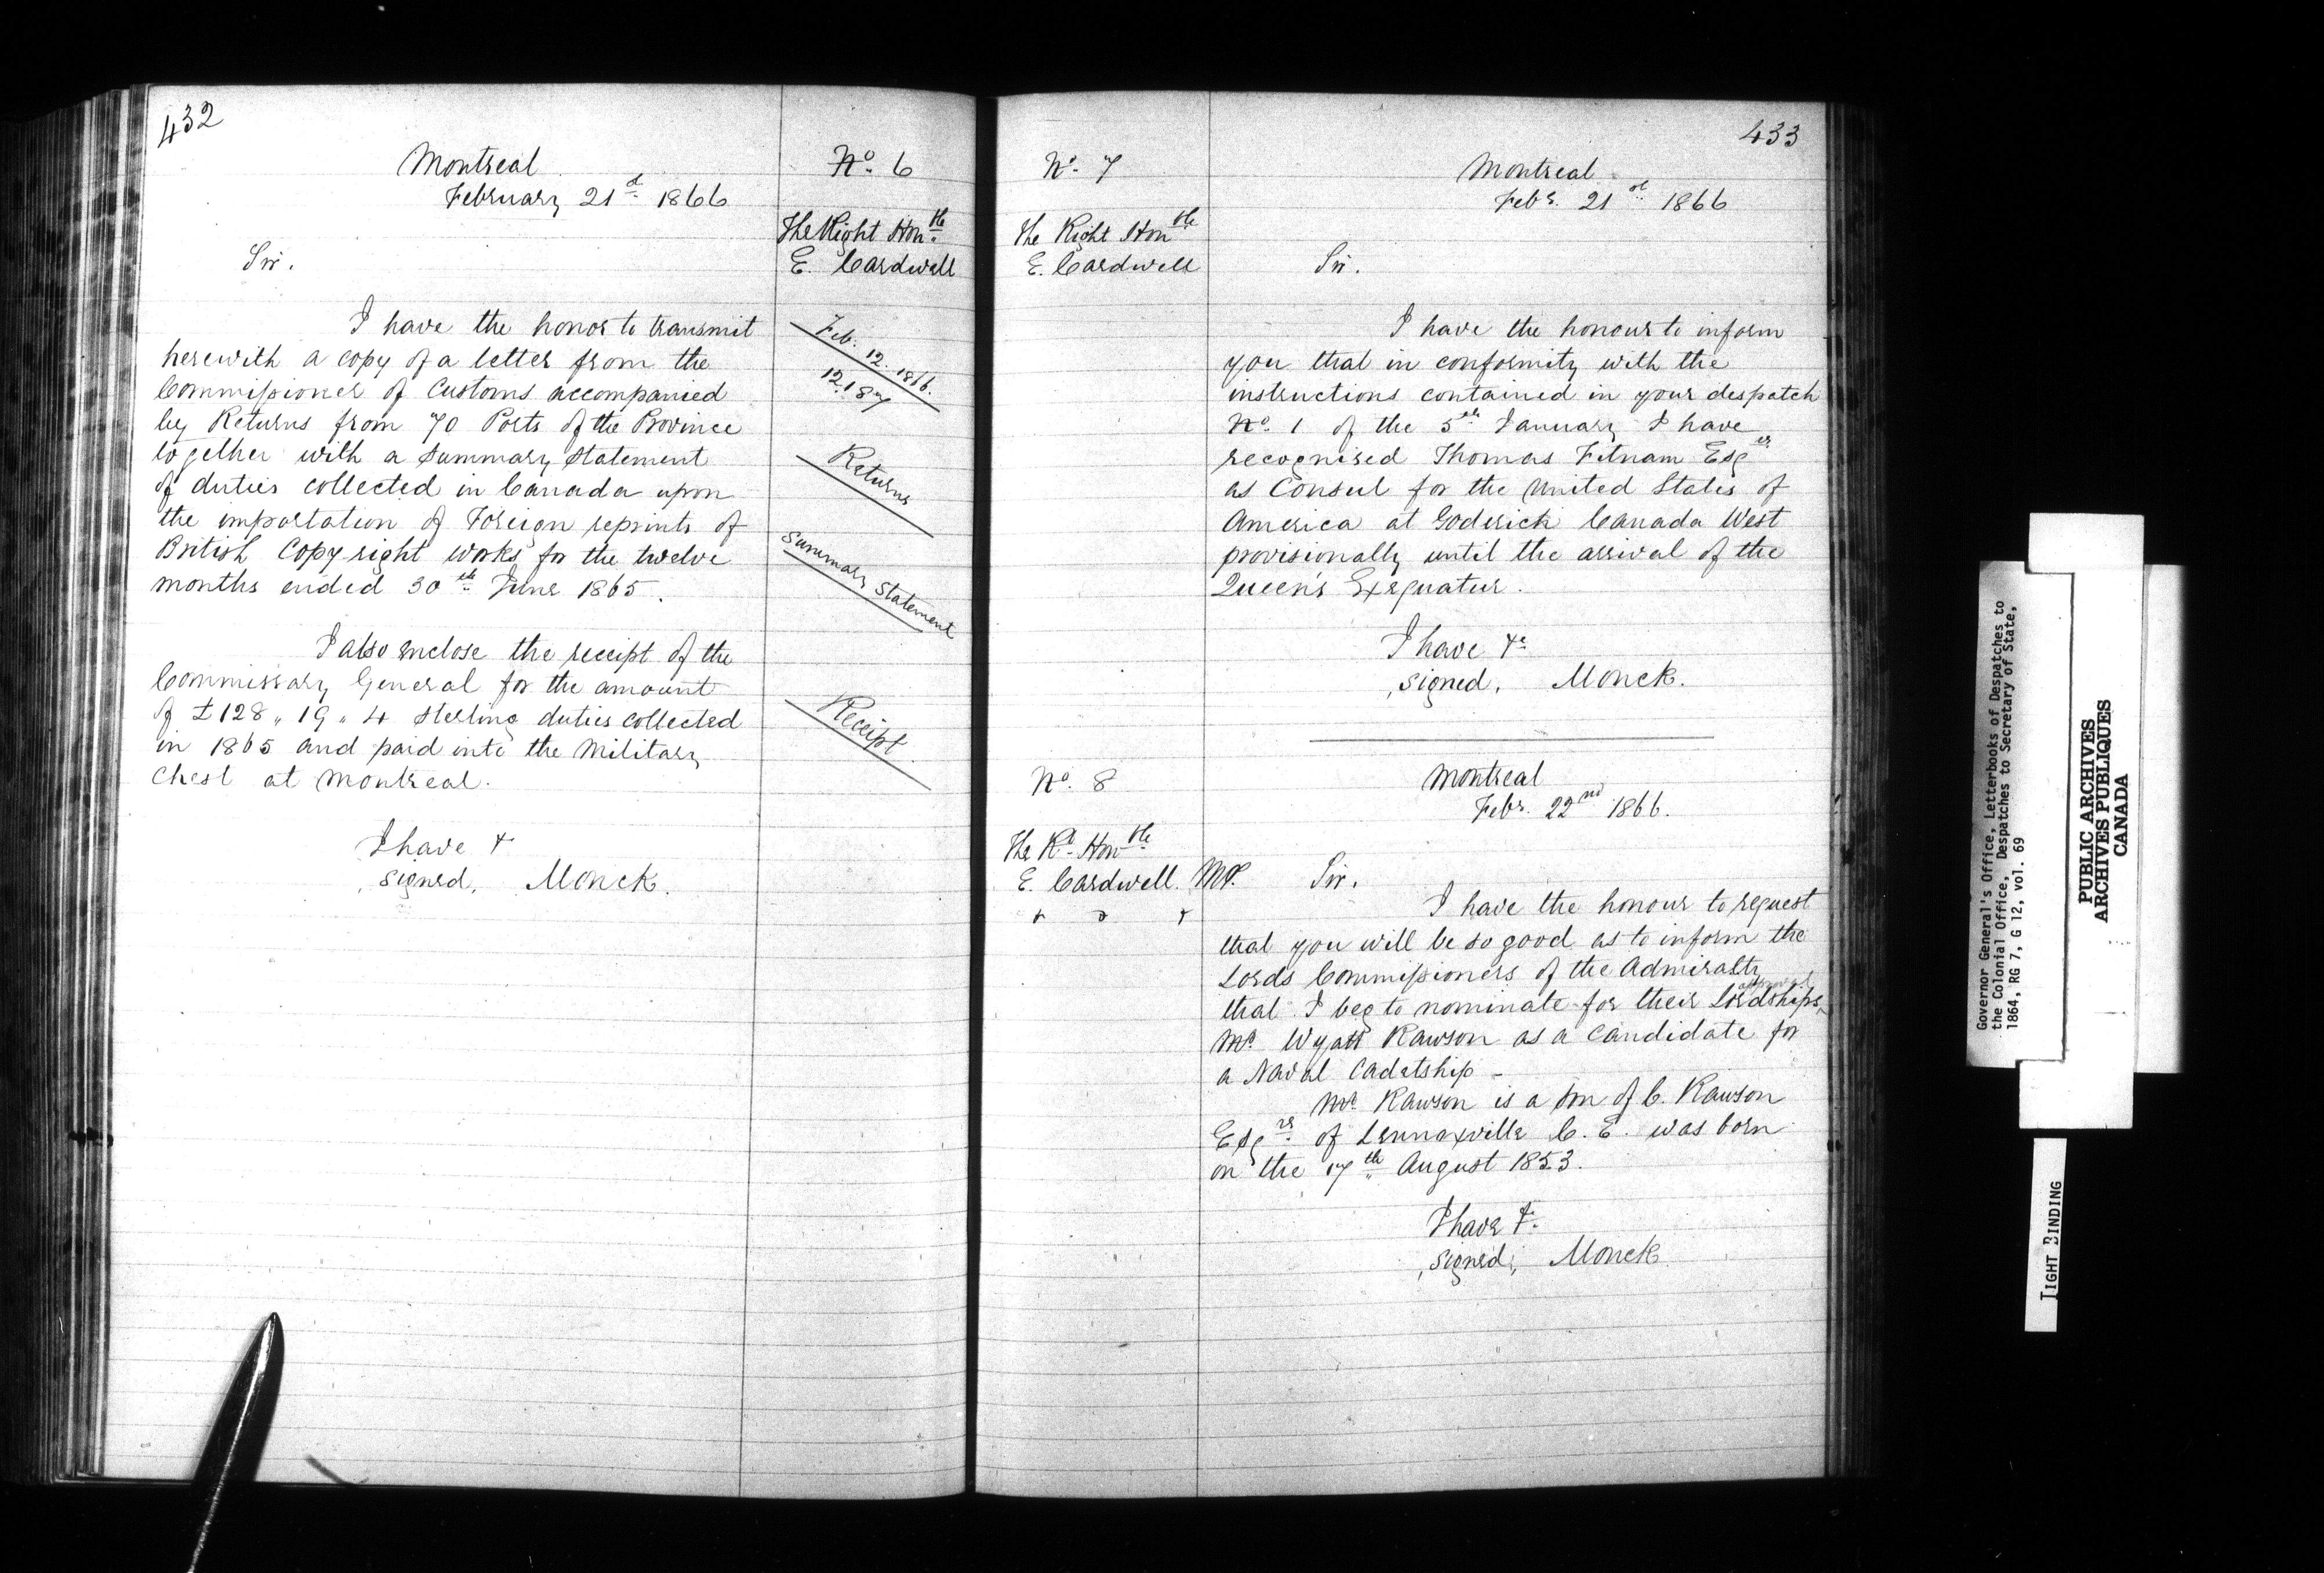 432
Montreal
February 21st 1866
No. 6
The Right Honble
E. Cardwell
Sir.
I have the honor to transmit
herewith a copy of a letter from the
Commissioner of Customs accompanied
by Returns from 70 Ports of the Province
together with a summary statement
of duties collected in Canada upon
the importation of Foreign reprints of
British Copy right works for the twelve
months ended 30th June 1865.
Feb. 12. 1866.
Returns
Summary Statement
I also enclose the receipt of the
Commissary General for the amount
of £128 " 19 " 4 sterling duties collected
in 1865 and paid into the Military
Chest at Montreal.
Receipt
I have &
signed, Monck.
433
No. 7
Montreal
Feby. 21st 1866
The Right Honble
E. Cardwell
Sir.
I have the honour to inform
you that in conformity with the
instructions contained in your despatch
No. 1 of the 5th January I have
recognised Thomas Fitnam Esqre
as Consul for the United States of
America at Goderich Canada West
provisionally until the arrival of the
Queen's Exequatur.
I have &c
signed, Monck.
No. 8
Montreal
Feby. 22nd 1866.
The Rt Honble
E. Cardwell. MP.
& & &
Sir.
I have the honour to request
that you will be so good as to inform the
Lords Commissioners of the Admiralty
that I beg to nominate for their Lordships approval
Mr. Wyatt Rawson as a Candidate for
a Naval Cadetship -
Mr. Rawson is a son of C. Rawson
Esqre of Lennoxville C. E. was born
on the 17th August 1853.
I have &.
signed, Monck
Governor General's Office, Letterbooks of Despatches to
the Colonial Office, Despatches to Secretary of State,
1864, RG 7, G 12, vol. 69
PUBLIC ARCHIVES
ARCHIVES PUBLIQUES
CANADA
TIGHT BINDING